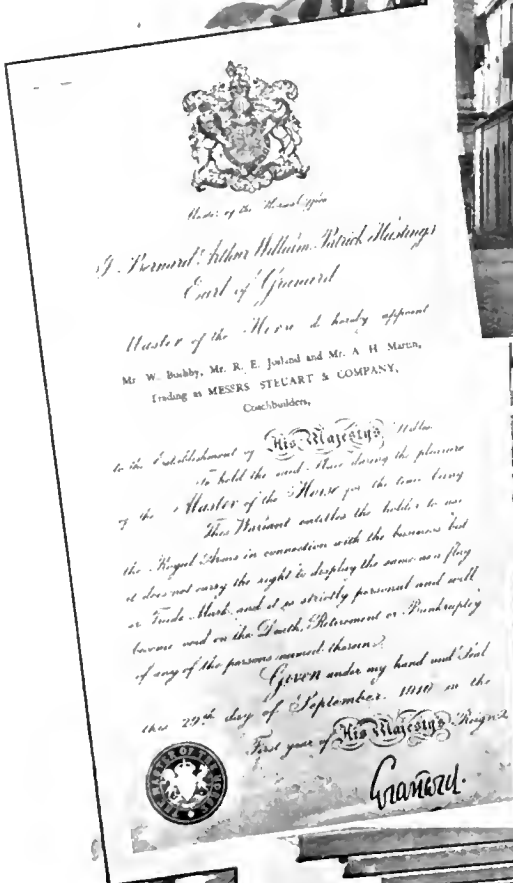 Master of the Horse's Office
I, Bernard Arthur William Patrick Hastings
Earl of Granard
Master of the Horse do hereby appoint
Mr W. Bushby, Mr. R. E. Josland and Mr. A H Martin,
Trading as MESSRS STEUART & COMPANY,
Coachbuilders,
to the Establishment of His Majesty's
To hold the said Place during the pleasure
of the Master of the Horse for the time being
This Warrant entitles the holder to use
the Royal Arms in connection with the business but
it does not carry the right to display the same as a flag
or Trade Mark and it is strictly personal and will
become void on the Death, Retirement or Bankruptcy
of any of the persons named therein.
Given under my hand and Seal
this 29th day of September 1910 in the
First year of His Majesty's Reign
THE MASTER OF THE HORSE
Granard.